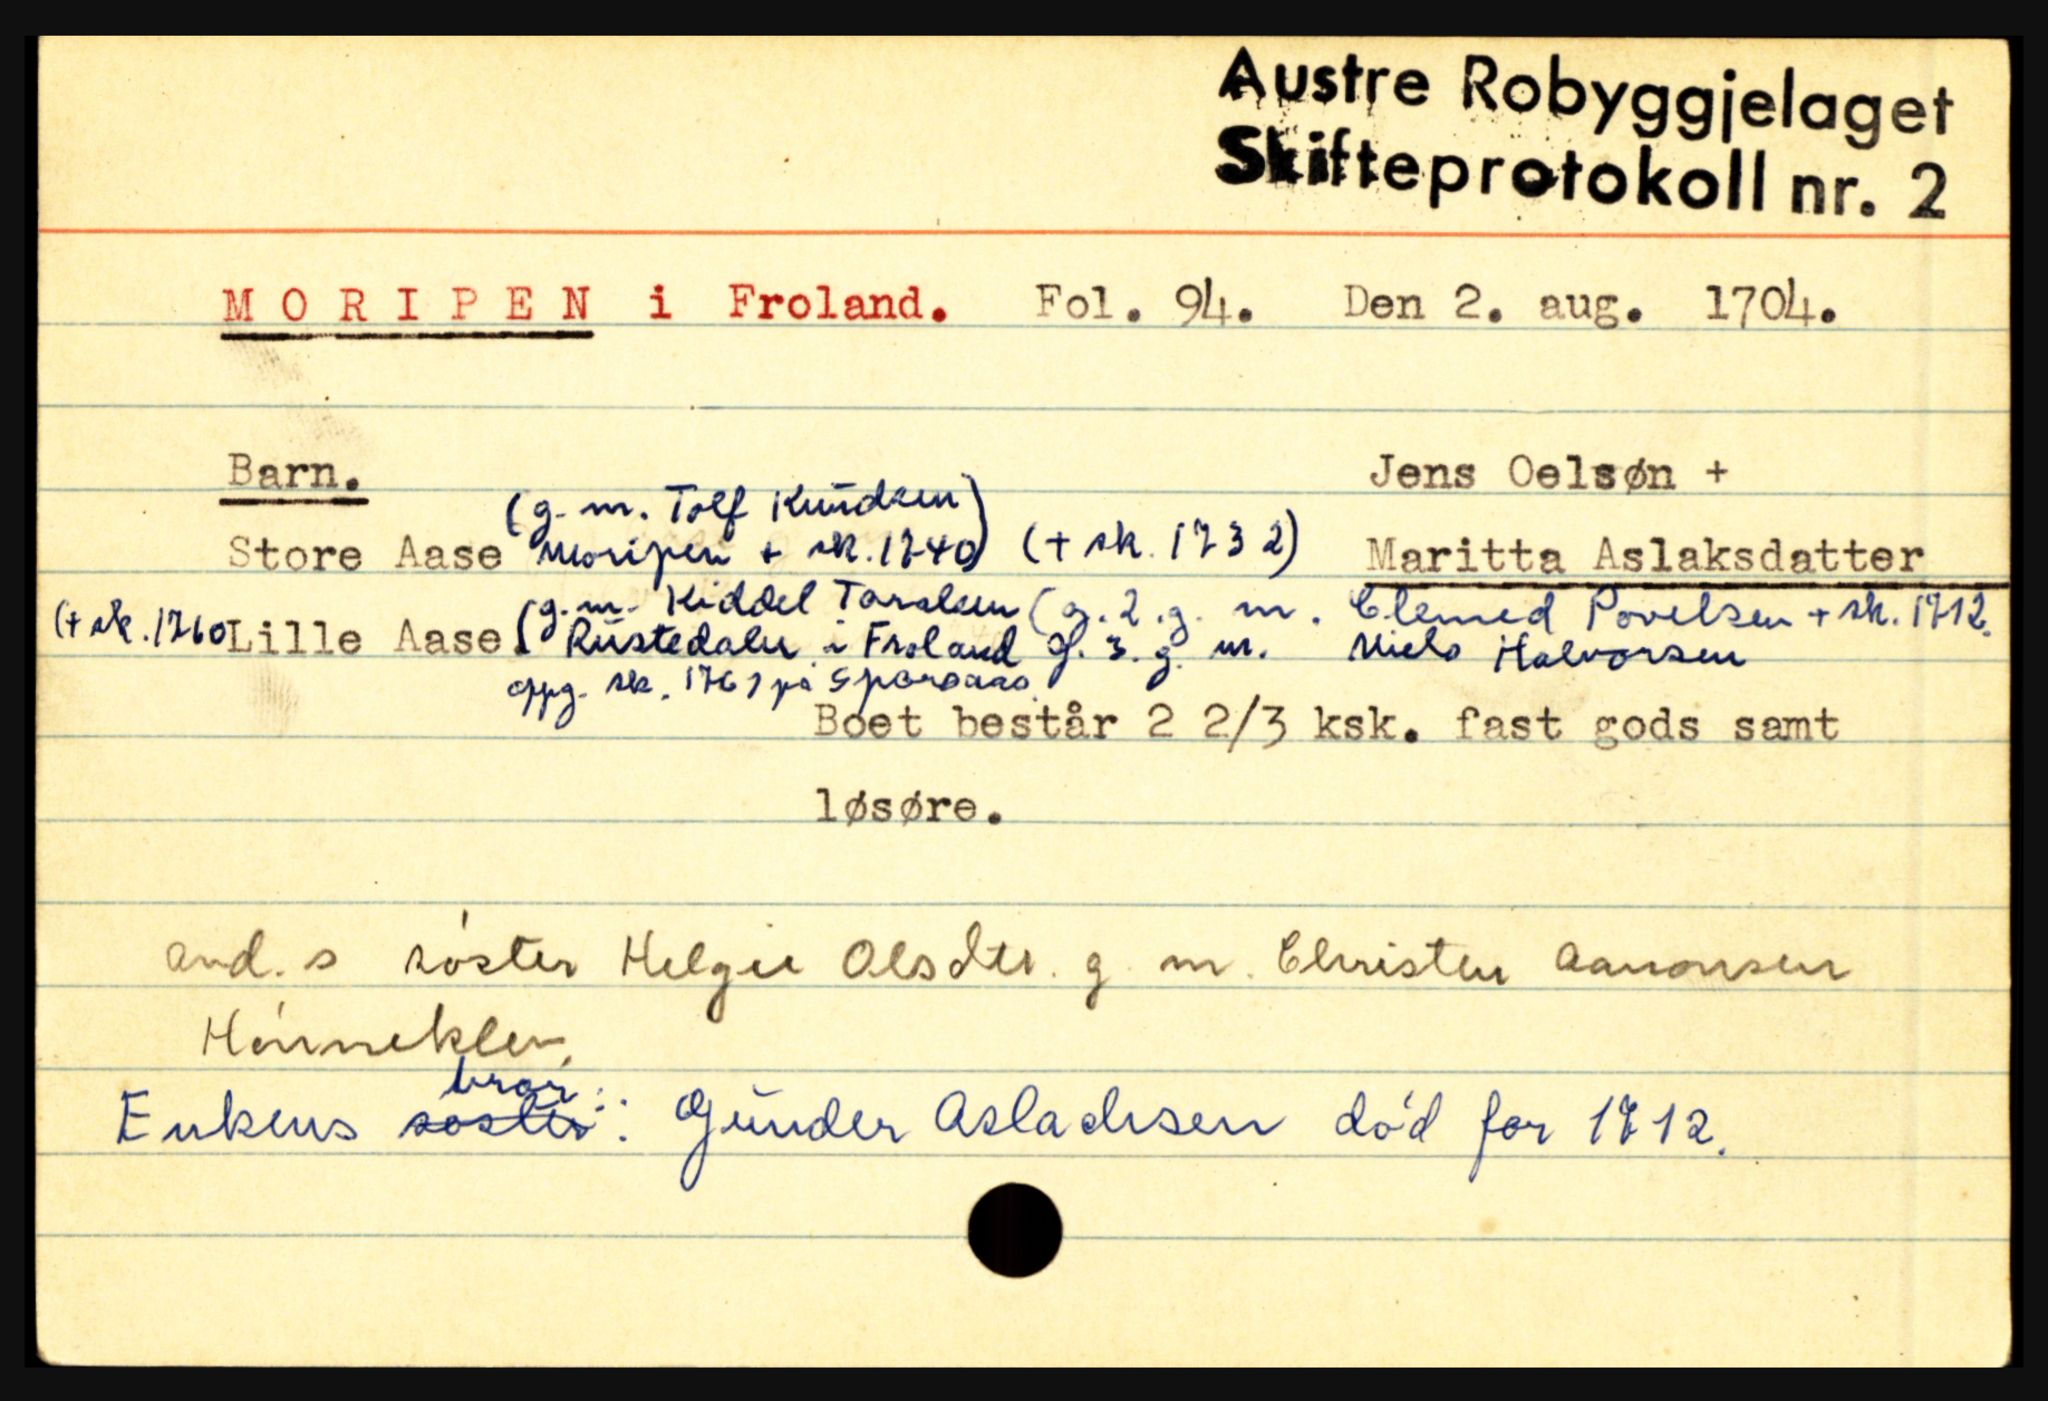 Austre Robyggjelaget
Skifteprotokoll nr. 2
MORIPEN i Froland. Fol. 94. Den 2. aug. 1704.
Barn. Jens Oelsøn +
(g. m. Tolf Knudsen)
Store Aase Moripen + sk. 1740) (+ sk. 1732) Maritta Aslaksdatter
(g. m. Kiddel Taralsen (g. 2. g. m. Clemed Povelsen + sk. 1712.
(+ sk. 1760 Lille Aase. Rustedalen i Froland g. 3. g. m. Niels Halvorsen
oppg. sk. 1761 på Sparsaas
Boet består 2 2/3 ksk. fast gods samt
løsøre.
avd. s søster Helgie Olsdtr. g m. Christen Aanonsen
Hønneklev.
bror:
Enkens søster: Gunder Aslachsen død før 1712.